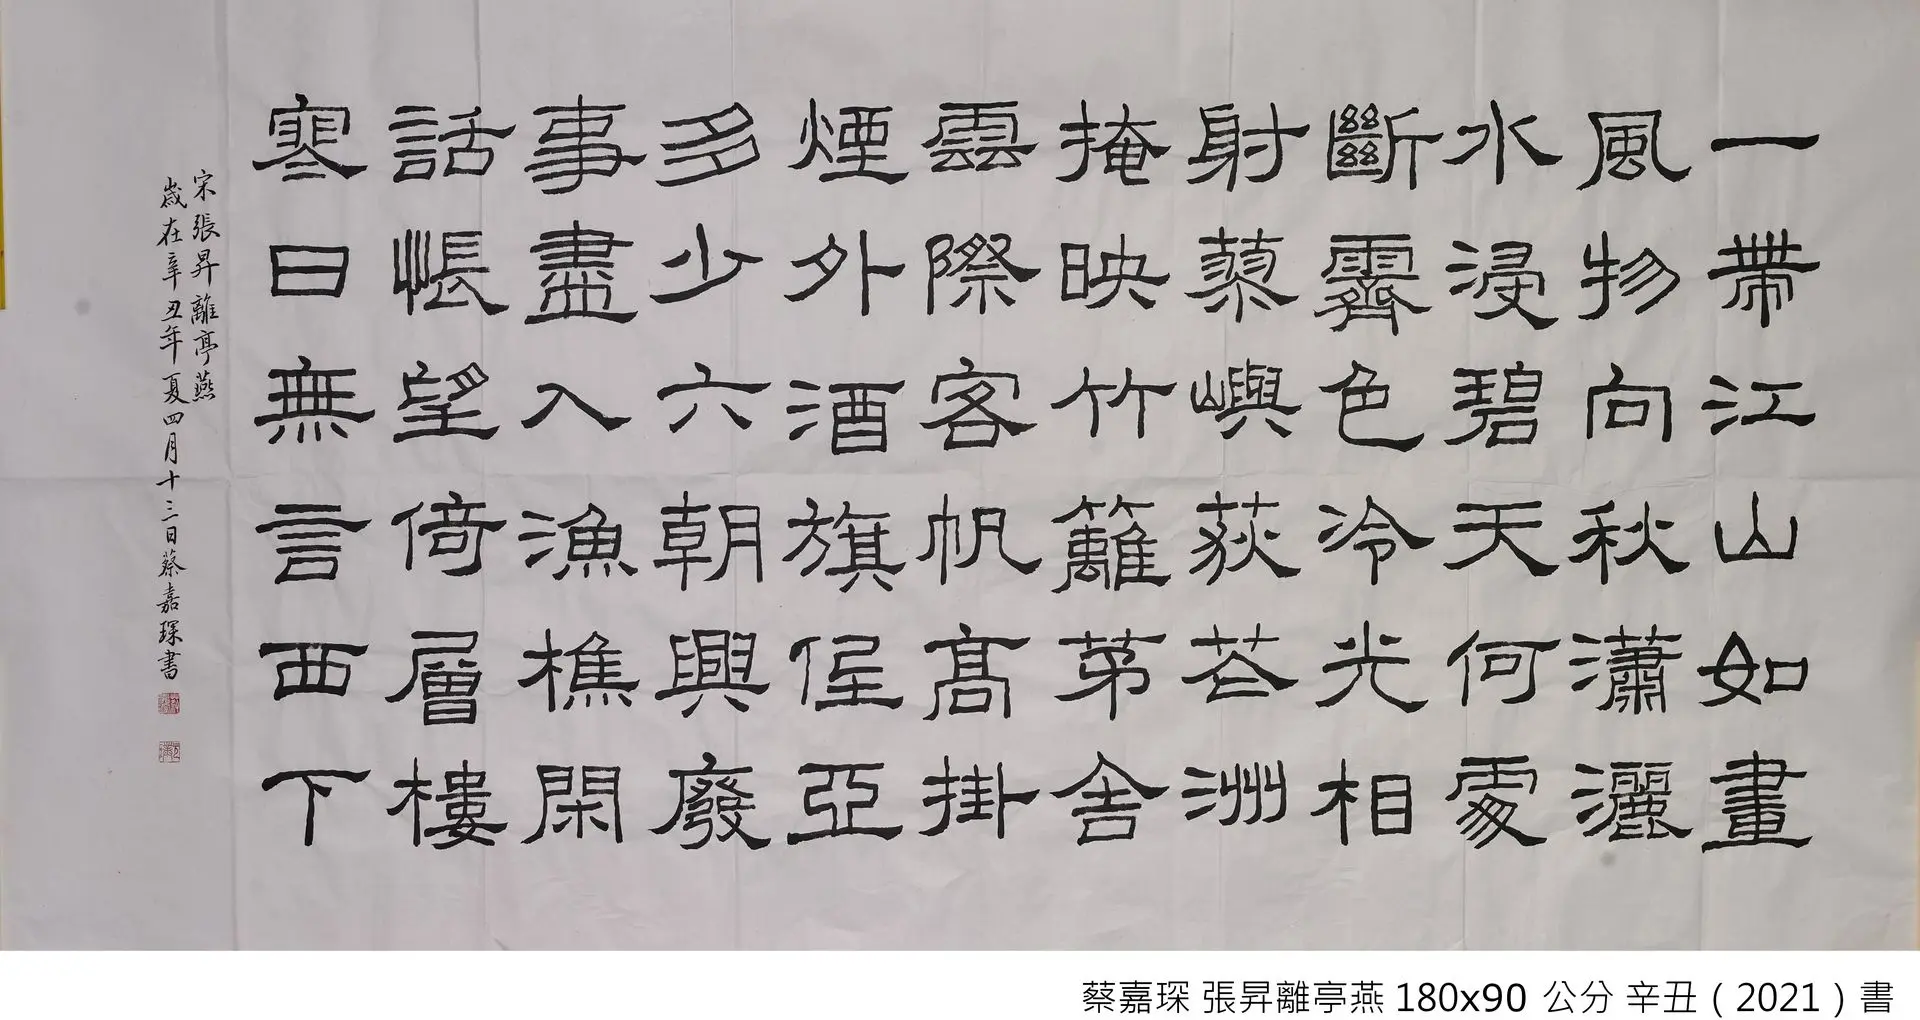 一帶江山如畫
風物向秋瀟灑
水浸碧天何處
斷霽色冷光相
射蓼嶼荻花洲
掩映竹籬茅舍
雲際客帆高掛
煙外酒旗低亞
多少六朝興廢
事盡入漁樵閑
話悵望倚層樓
寒日無言西下
宋張昇離亭燕
歲在辛丑年夏四月十三日蔡嘉琛書
蔡嘉琛 張昇離亭燕 180x90 公分 辛丑（2021）書